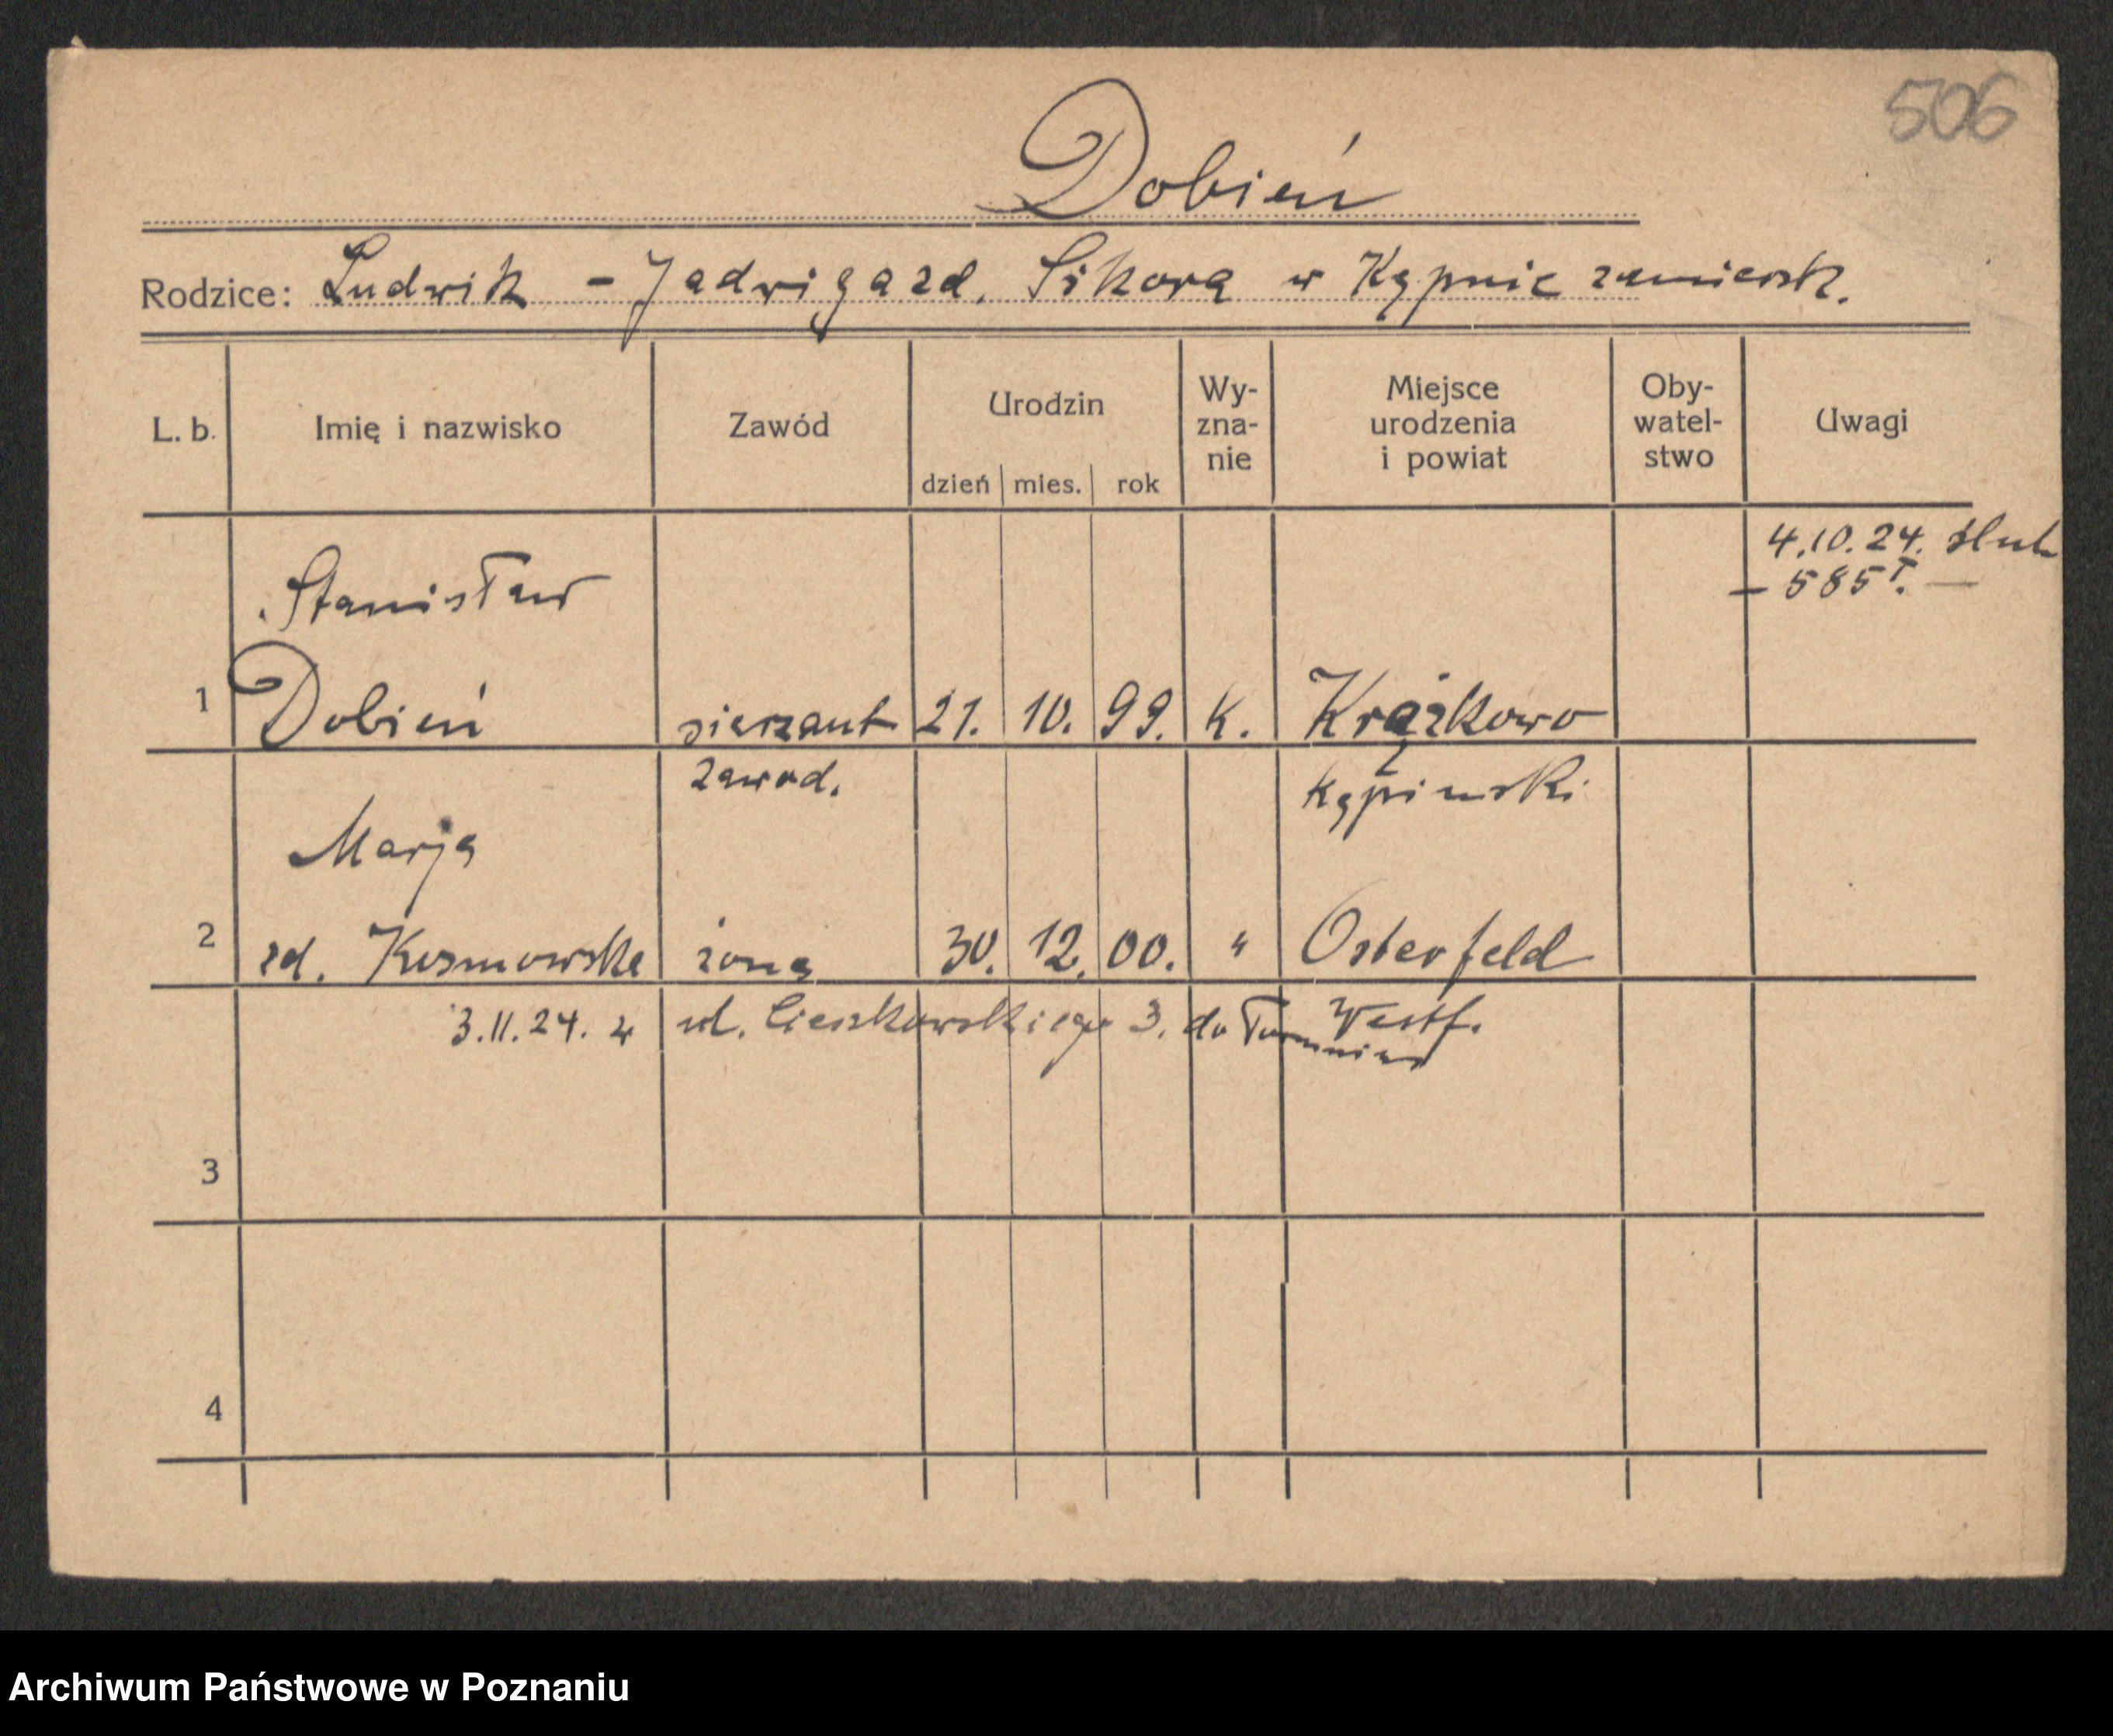 506
Dobień
Rodzice: Ludwik - Jadwiga zd. Sikora w Kępnie zamieszk.
L. b. Imię i nazwisko Zawód Urodzin dzień mies. rok Wy-zna-nie Miejsce urodzenia i powiat Oby-watel-stwo Uwagi
4.10.24. ślub
- 585 I. -
Stanisław
1 Dobień sierżant 21. 10. 99. k. Krążkowo
zawod. kępiński
Marja
2 zd. Kosmowska żona 30. 12. 00. " Osterfeld
Westf.
3.11.24. z ul. Cieszkowskiego 3. do
3
4
Archiwum Państwowe w Poznaniu